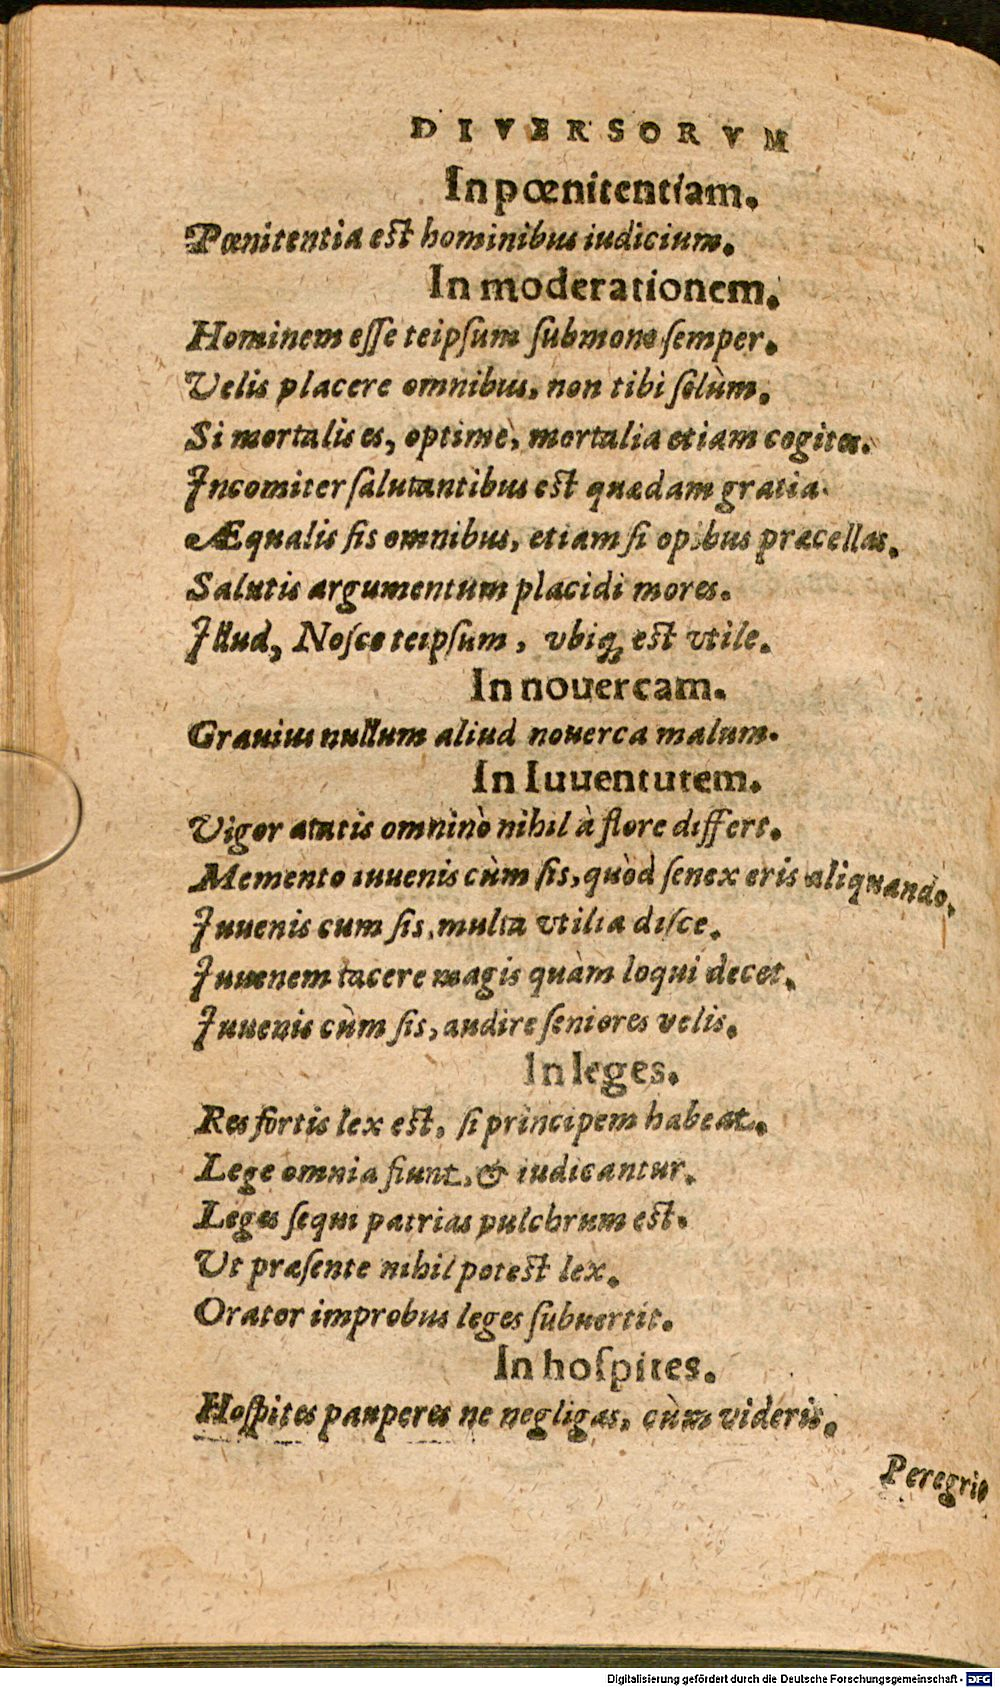 DIVERSORVM
In pœnitentiam.
Pœnitentia est hominibus iudicium.
In moderationem.
Hominem eſſe teipſum ſubmone ſemper.
Velis placere omnibus, non tibi ſolùm.
Si mortalis es, optime, mortalia etiam cogites.
Incomiter ſalutantibus est quædam gratia.
Æqualis ſis omnibus, etiam ſi opibus præcellas.
Salutis argumentum placidi mores.
Illud, Noſce teipſum, vbiq; est vtile.
In nouercam.
Grauius nullum aliud nouerca malum.
In Iuuentutem.
Vigor ætatis omninò nihil à flore differt.
Memento iuuenis cùm ſis, quòd ſenex eris aliquando.
Iuuenis cum ſis, multa vtilia diſce.
Iuuenem tacere magis quàm loqui decet.
Iuuenis cùm ſis, audire ſeniores velis.
In leges.
Res fortis lex est, ſi principem habeat.
Lege omnia fiunt, & iudicantur.
Leges ſequi patrias pulchrum est.
Vt præſente nihil potest lex.
Orator improbus leges ſubuertit.
In hoſpites.
Hoſpites pauperes ne negligas, cùm videris.
Peregri-
Digitalisierung gefördert durch die Deutsche Forschungsgemeinschaft - DFG